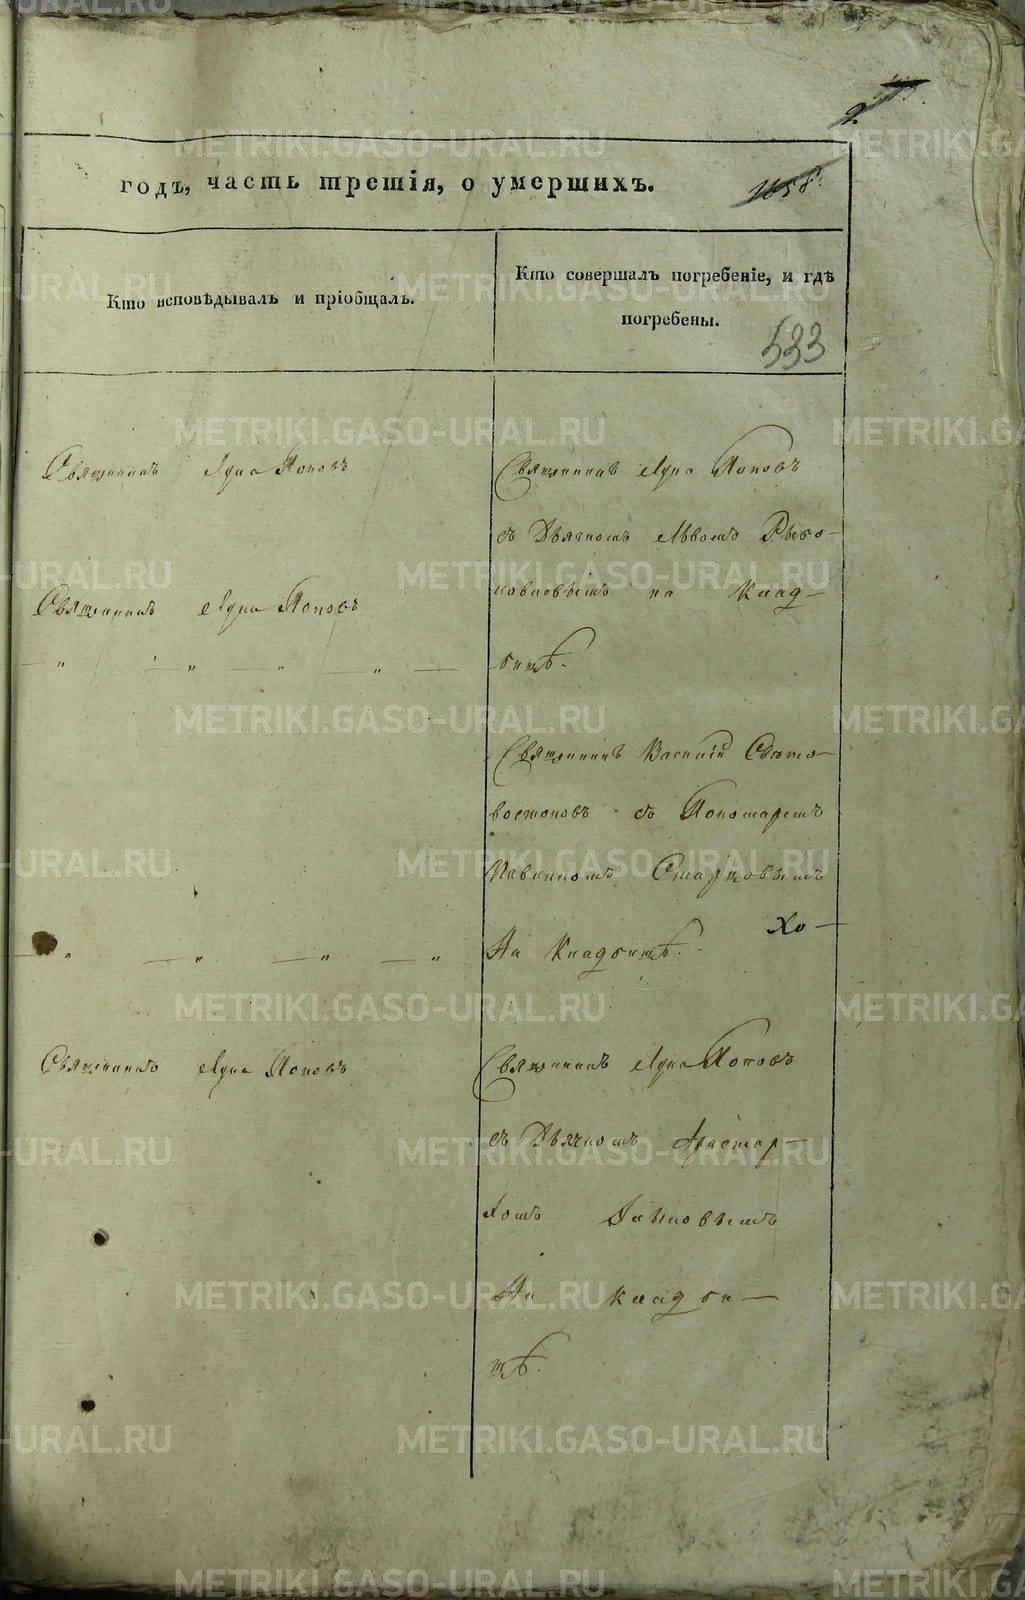 годъ, часть третія, о умершихъ.
Кто исповѣдывалъ и пріобщалъ.
Кто совершалъ погребеніе, и гдѣ
погребены.
533
Священникъ Лука Поповъ
Священникъ Лука Поповъ
съ Дьячкомъ Львомъ
Священникъ Лука Поповъ
на Клад-
бищѣ.
Священникъ Василій Свято-
востоковъ съ Пономаремъ
Старцовымъ
Хо-
На Кладбищѣ.
Священникъ Лука Поповъ
Священникъ Лука Поповъ
съ Дьячкомъ Аристар-
хомъ
На кладби-
щѣ.
METRIKI.GASO-URAL.RU